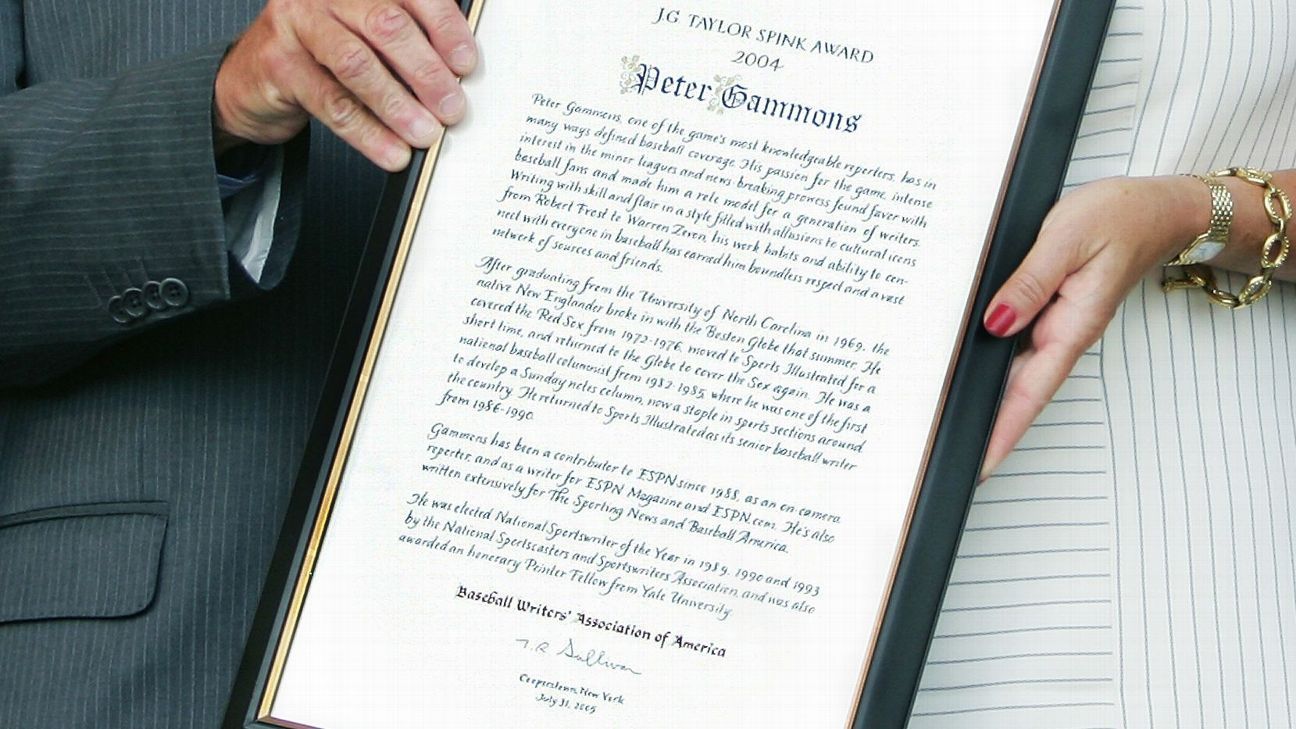 J.G. TAYLOR SPINK AWARD
2004
Peter Gammons
Peter Gammons, one of the game's most knowledgeable reporters, has in
many ways defined baseball coverage. His passion for the game, intense
interest in the minor leagues and news breaking prowess found favor with
baseball fans and made him a role model for a generation of writers.
Writing with skill and flair in a style filled with allusions to cultural icons
from Robert Frost to Warren Zevon, his work habits and ability to con-
nect with everyone in baseball has earned him boundless respect and a vast
network of sources and friends.
After graduating from the University of North Carolina in 1969, the
native New Englander broke in with the Boston Globe that summer. He
covered the Red Sox from 1972-1976, moved to Sports Illustrated for a
short time, and returned to the Globe to cover the Sox again. He was a
national baseball columnist from 1982-1985, where he was one of the first
to develop a Sunday notes column, now a staple in sports sections around
the country. He returned to Sports Illustrated as its senior baseball writer
from 1986-1990.
Gammons has been a contributor to ESPN since 1988, as an on-camera
reporter, and as a writer for ESPN Magazine and ESPN.com. He's also
written extensively for The Sporting News and Baseball America.
He was elected National Sportswriter of the Year in 1989, 1990 and 1993
by the National Sportscasters and Sportswriters Association, and was also
awarded an honorary Poynter Fellow from Yale University.
Baseball Writers' Association of America
T.R. Sullivan
Cooperstown, New York
July 31, 2005